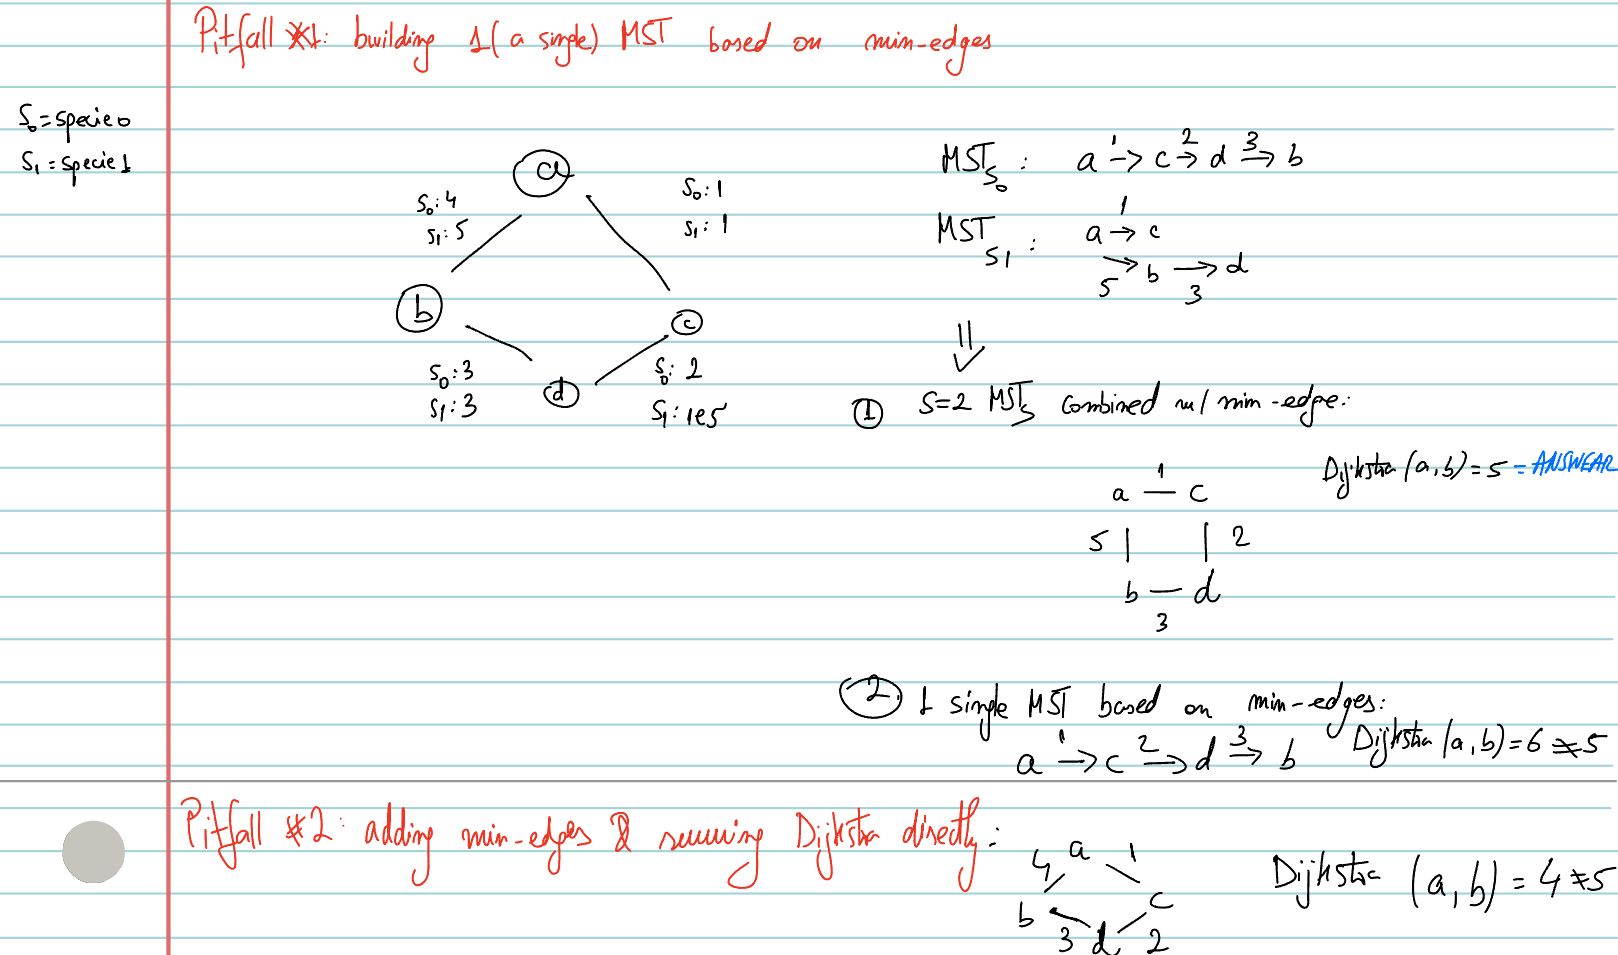 Pitfall #1: building 1 (a single) MST based on min-edges
S₀ = specie 0
S₁ = specie 1
a
S₀: 4
S₁: 5
S₀: 1
S₁: 1
b
c
S₀: 3
S₁: 3
d
S₀: 2
S₁: 1e5
MST S₀ : a 1→ c 2→ d 3→ b
MST S1 : a 1→ c
5→ b →3 d
⇓
① S=2 MSTs combined w/ min-edge:
Dijkstra (a,b) = 5 = ANSWEAR
1
a — c
5 | | 2
b — d
3
② 1 single MST based on min-edges:
a 1→ c 2→ d 3→ b Dijkstra (a,b) = 6 ≠ 5
Pitfall #2: adding min-edges & running Dijkstra directly:
4 a 1
b c
3 d 2
Dijkstra (a,b) = 4 ≠ 5